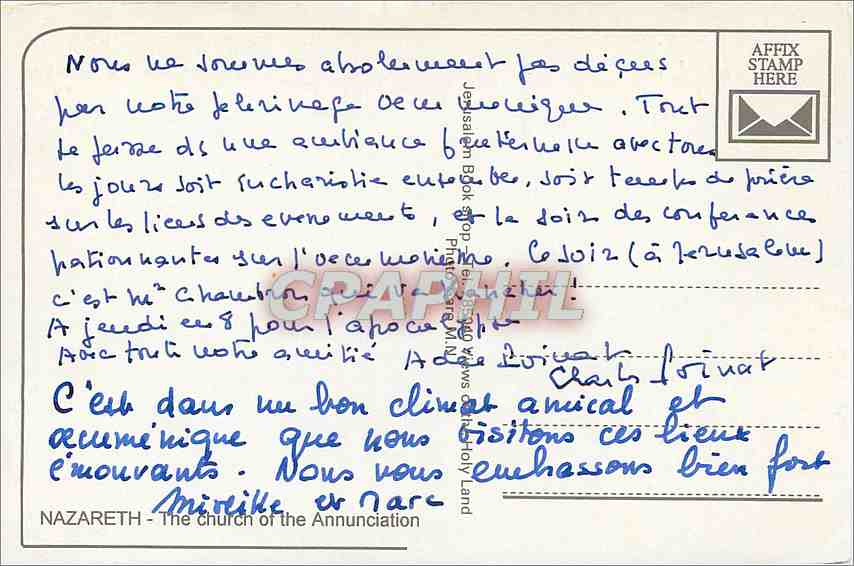 AFFIX
STAMP
HERE
Nous ne sommes absolument pas déçus
par notre pelerinage oecumenique. Tout
se passe ds une ambiance fraternelle avec tous
les jours soit Eucharistie ensemble, soit temps de prière
sur les lieux des evenements, et le soir des conferences
passionnantes sur l'oecumenisme. Ce soir (à Jerusalem)
c'est Mr Chambron qui va !
A jeudi en 8 pour l'apocalypse
Avec toute notre amitié Poinat
Charles Poinat
C'est dans un bon climat amical et
œcuménique que nous visitons ces lieux
émouvants. Nous vous embrassons bien fort
Mireille et Marc
NAZARETH - The church of the Annunciation
Jerusalem Book shop Views of the Holy Land
CPAPHIL